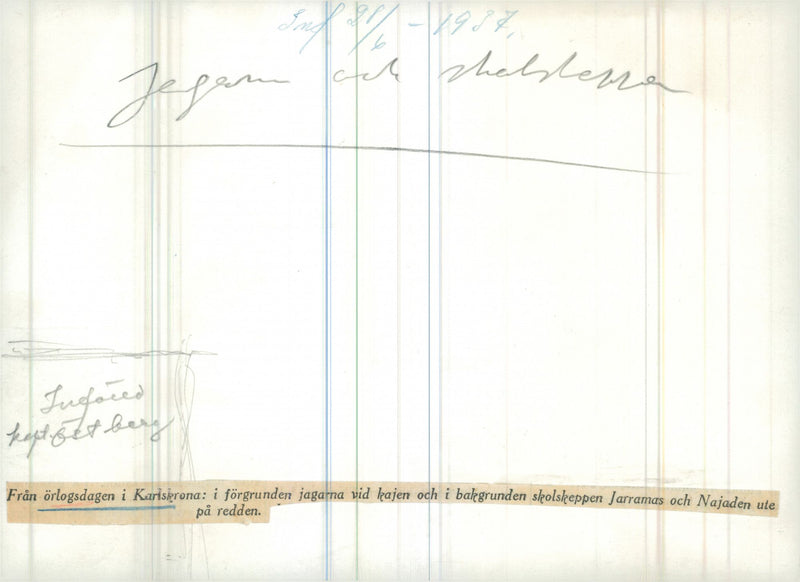 Inf 28/6 - 1937.
Jagarna och skolskeppen
Införd
Från örlogsdagen i Karlskrona: i förgrunden jagarna vid kajen och i bakgrunden skolskeppen Jarramas och Najaden ute
på redden.